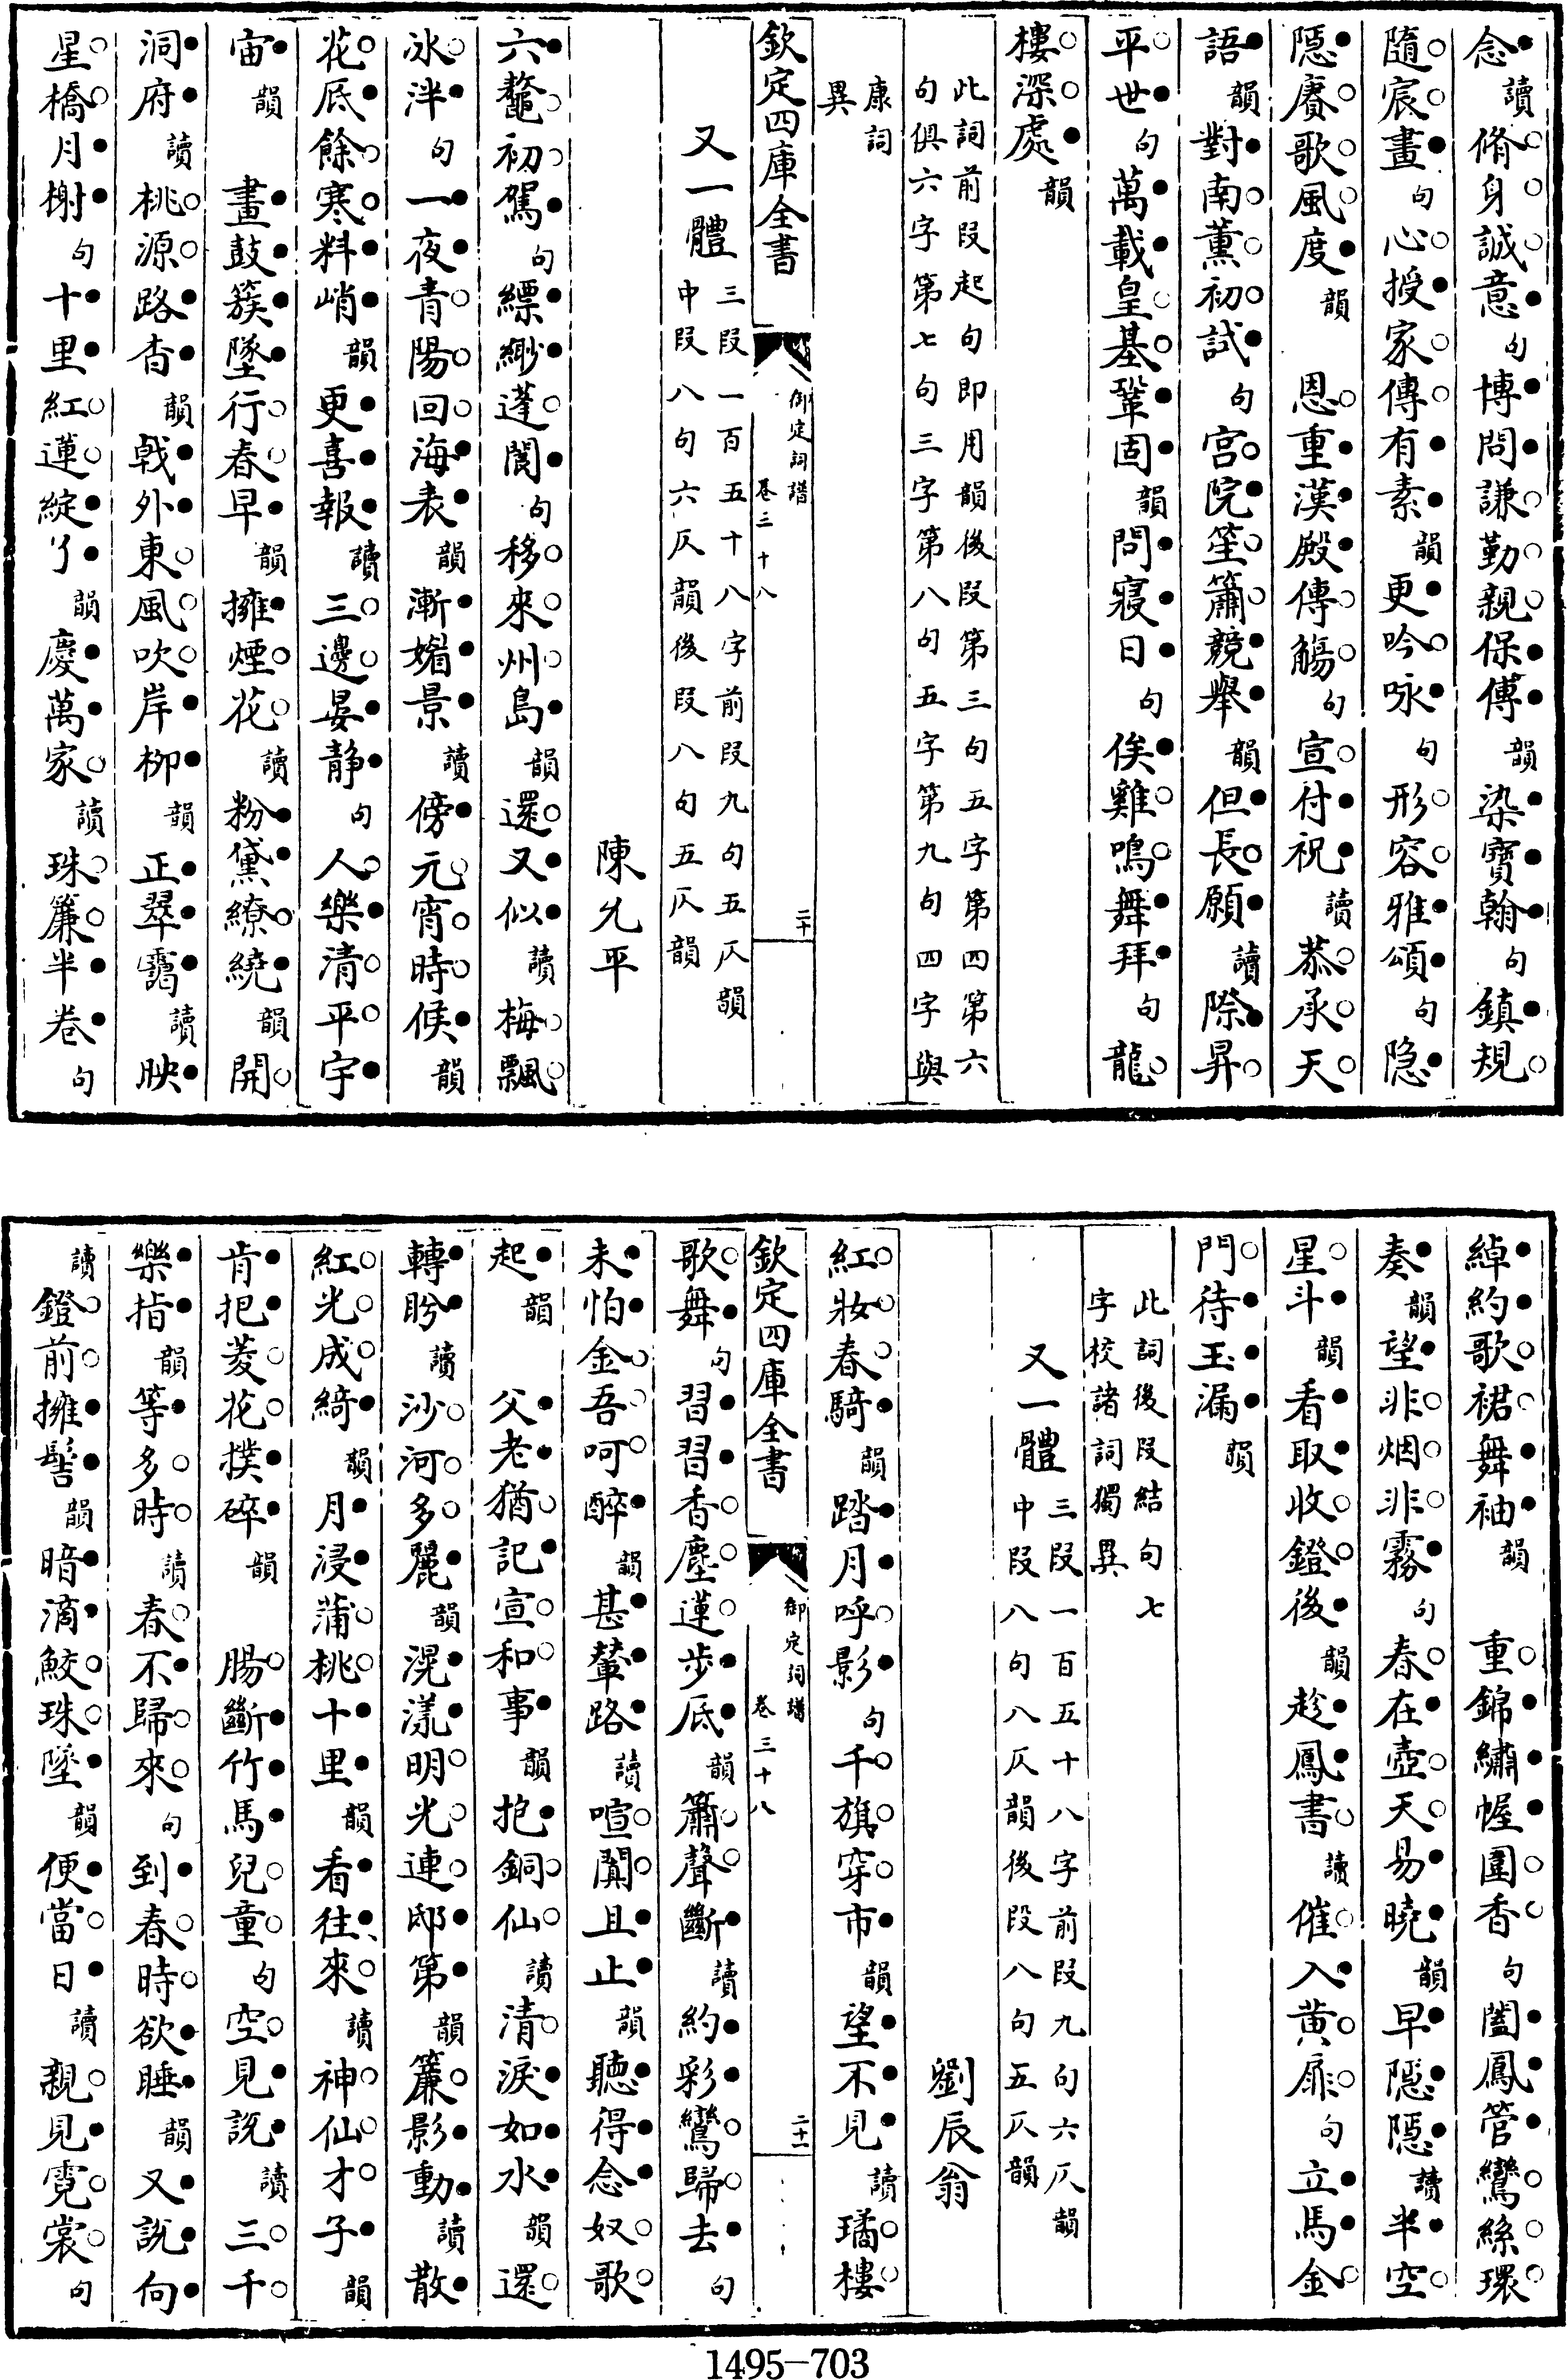 念讀脩身誠意句博問謙勤親保傅韻染寶翰句鎮規
隨宸畫句心授家傳有素韻更吟咏句形容雅頌句隐
隠賡歌風度韻恩重漢殿傳觴句宣付祝讀恭承天
語韻對南薫初試句宫院笙簫競舉韻但長願讀際昇
平世句萬載皇基鞏固韻問寝日句俟雞鳴舞拜句龍
樓深處韻
此詞前段起句即用韻後段第三句五字第四第六
句俱六字第七句三字第八句五字第九句四字與
康詞
異
欽定四庫全書
御定詞譜
卷三十八
二十
又一體
三段一百五十八字前段九句五仄韻
中段八句六仄韻後段八句五仄韻
陳允平
六鼇初駕句縹緲蓬閬句移來州島韻還又似讀梅飄
冰泮句一夜青陽回海表韻漸媚景讀傍元宵時候韻
花底餘寒料峭韻更喜報讀三邊晏静句人樂清平宇
宙韻畫鼓簇墜行春早韻擁煙花讀粉黛繚繞韻開
洞府讀桃源路杳韻戟外東風吹岸柳韻正翠靄讀映
星橋月榭句十里紅蓮綻了韻慶萬家讀珠簾半卷句
綽約歌裙舞袖韻重錦繡幄圍香句闔鳳管鸞絲環
奏韻望非烟非霧句春在壺天易曉韻早隠隠讀半空
星斗韻看取收鐙後韻趁鳳書讀催入黄扉句立馬金
門待玉漏韻
此詞後段結句七
字校諸詞獨異
又一體
三段一百五十八字前段九句六仄韻
中段八句八仄韻後段八句五仄韻
劉辰翁
紅妝春騎韻踏月呼影句千旗穿市韻望不見讀璚樓
欽定四庫全書
御定詞譜
卷三十八
二十一
歌舞句習習香塵蓮步底韻簫聲斷讀約彩鸞歸去句
未怕金吾呵醉韻甚輦路讀喧闐且止韻聽得念奴歌
起韻父老猶記宣和事韻抱銅仙讀清淚如水韻還
轉盻讀沙河多麗韻滉漾明光連邸第韻簾影動讀散
紅光成綺韻月浸蒲桃十里韻看往來讀神仙才子韻
肯把菱花撲碎韻腸斷竹馬兒童句空見說讀三千
樂指韻等多時讀春不歸來句到春時欲睡韻又說向
讀鐙前擁髻韻暗滴鮫珠墜韻便當日讀親見霓裳句
1495-703